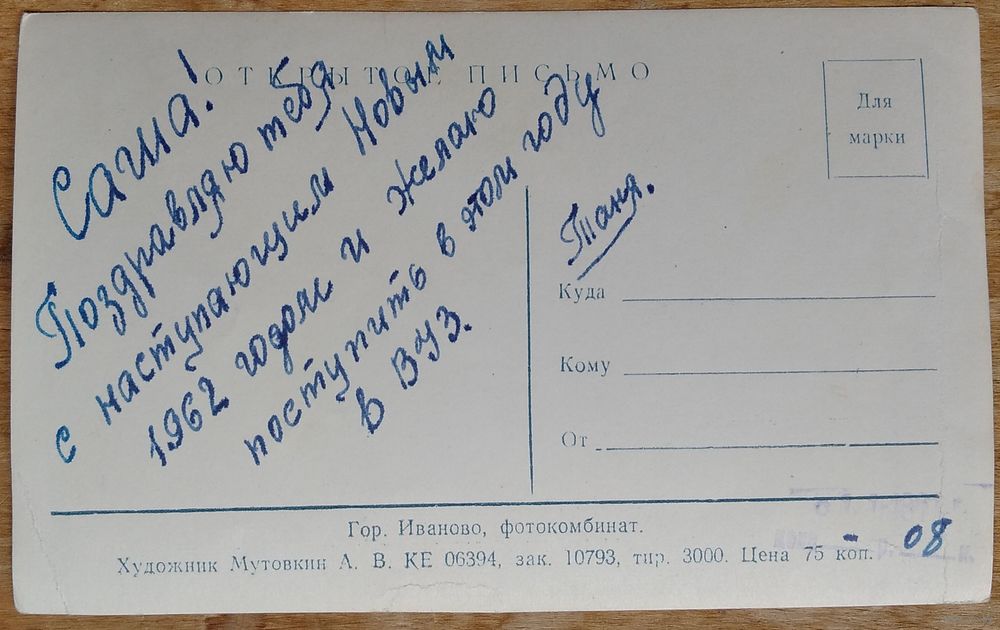 ОТКРЫТОЕ ПИСЬМО
Для
марки
Саша!
Поздравляю тебя
с наступающим Новым
1962 годом и желаю
поступить в этом году
в ВУЗ.
Таня.
Куда
Кому
От
Гор. Иваново, фотокомбинат.
Художник Мутовкин А. В. КЕ 06394, зак. 10793, тир. 3000. Цена 75 коп.
08